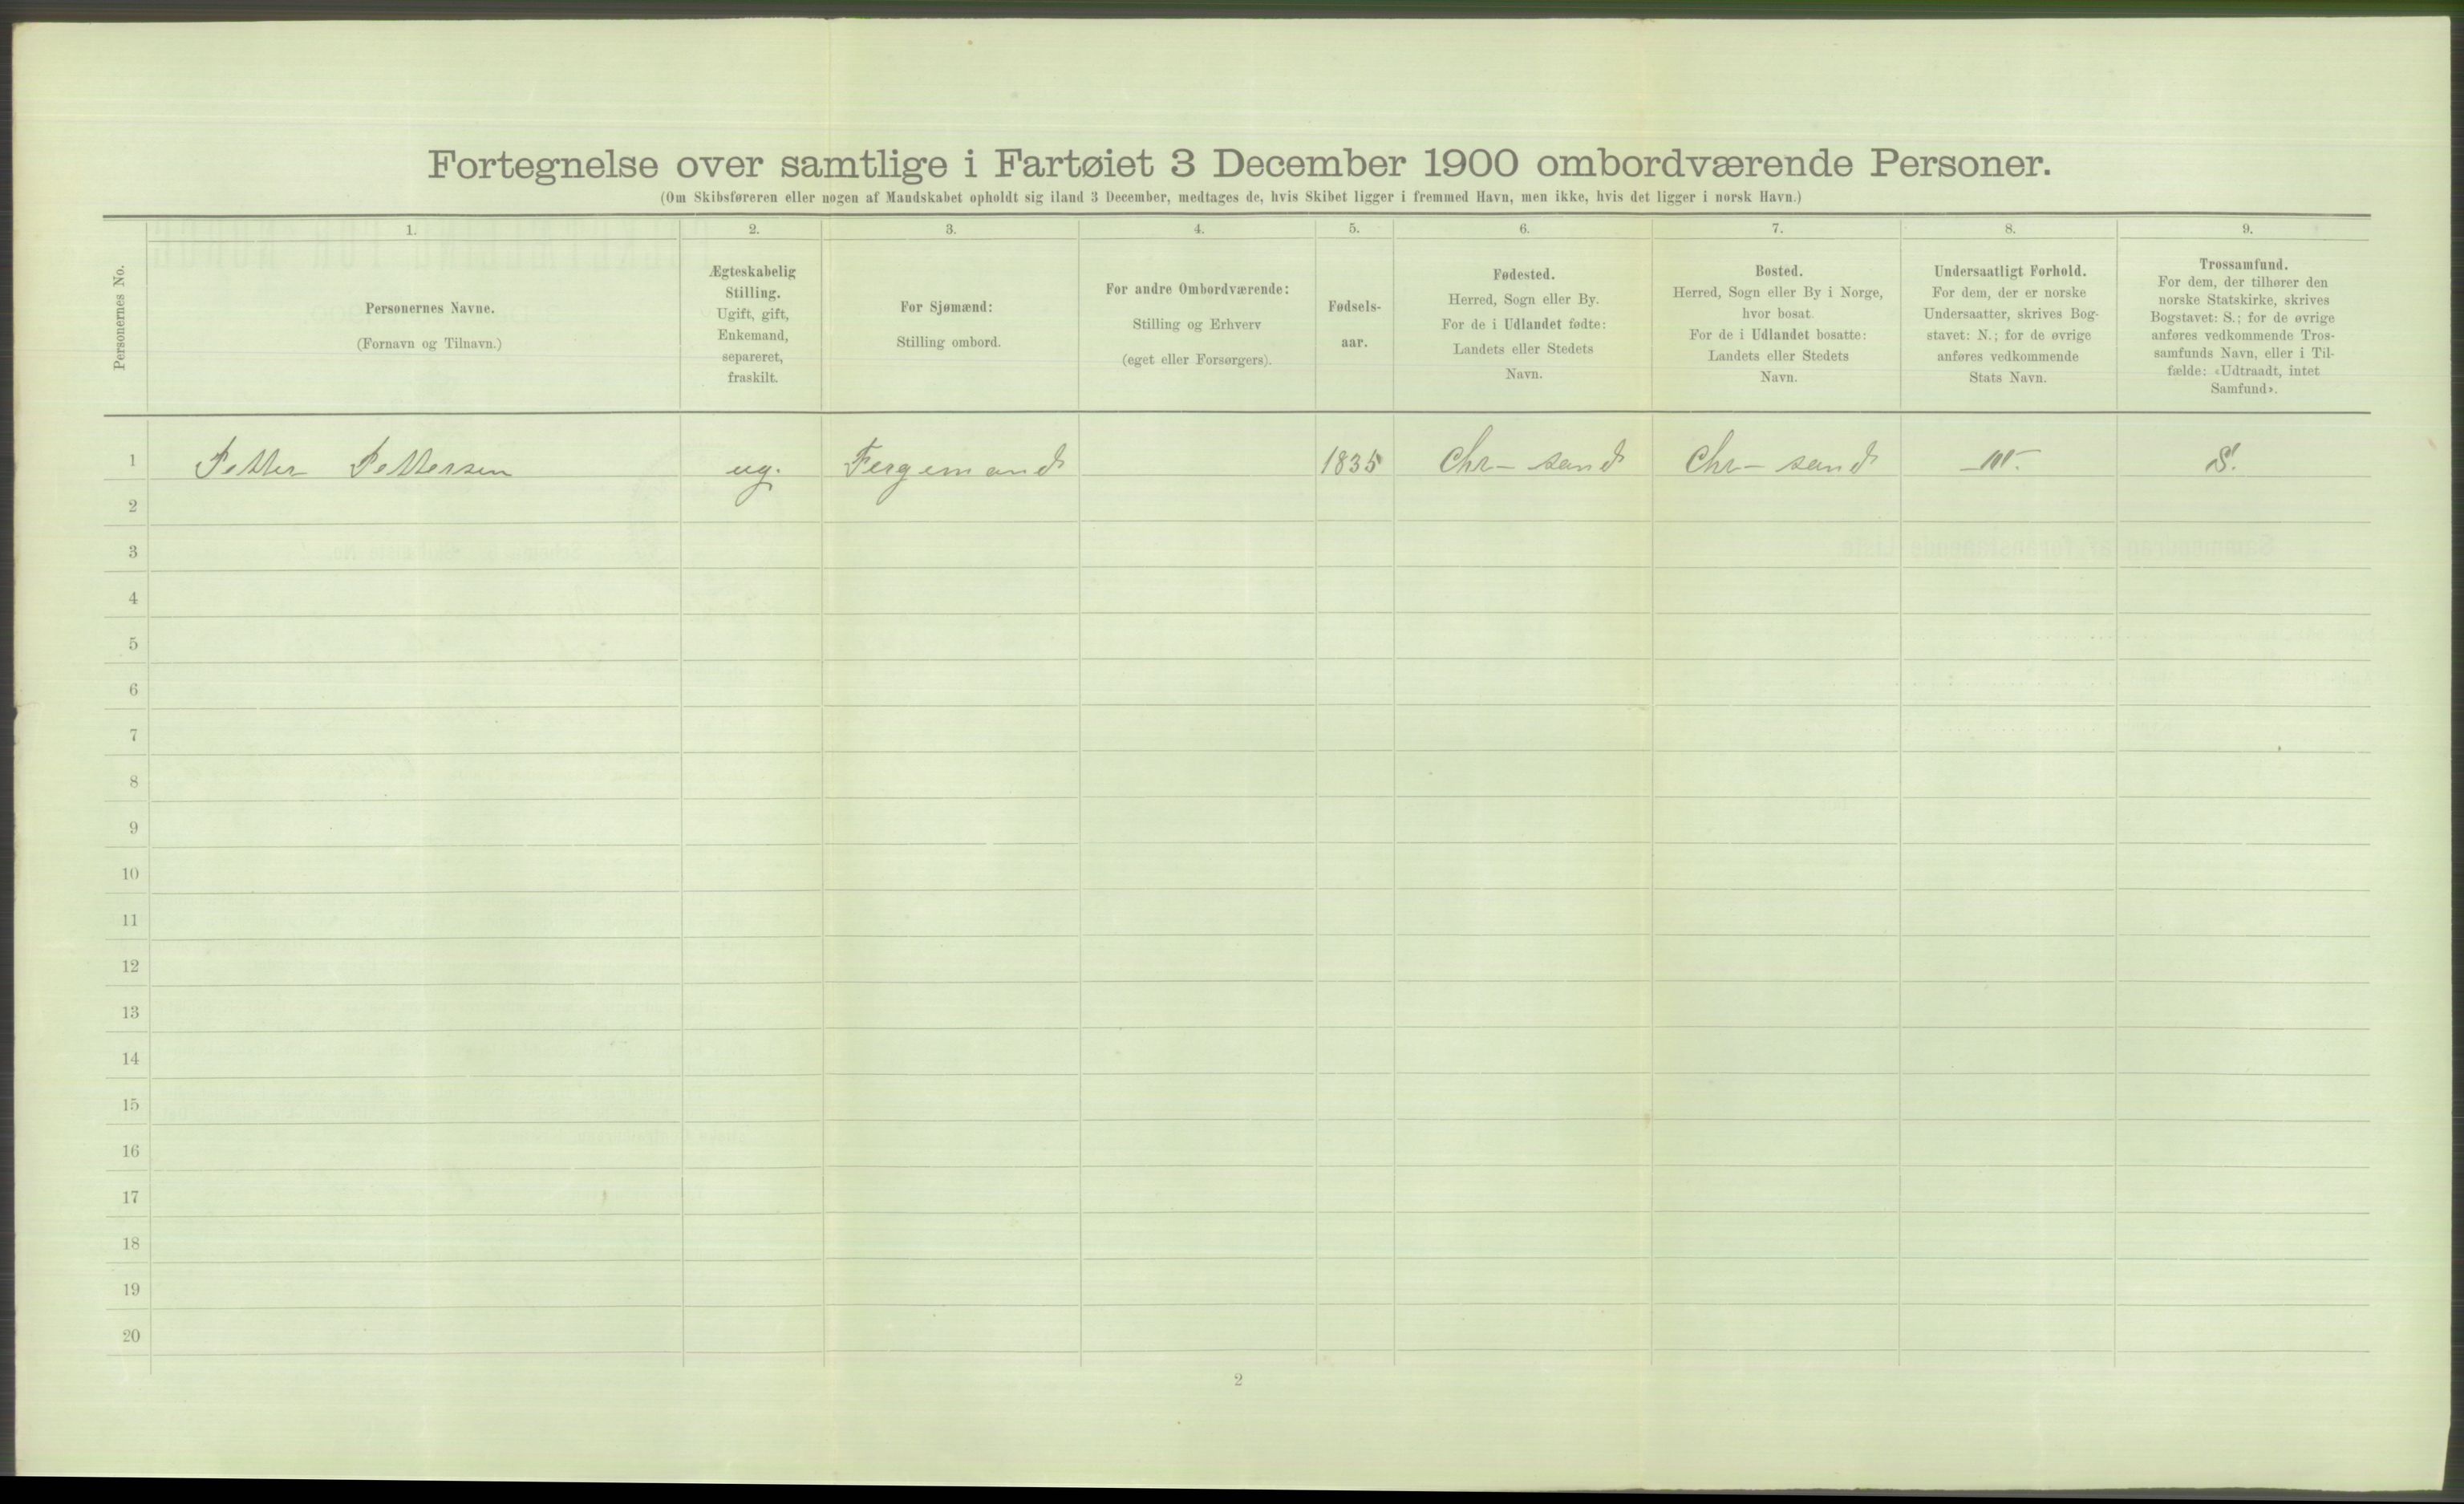 Fortegnelse over samtlige i Fartøiet 3 December 1900 ombordværende Personer.
(Om Skibsføreren eller nogen af Mandskabet opholdt sig iland 3 December, medtages de, hvis Skibet ligger i fremmed Havn, men ikke, hvis det ligger i norsk Havn.)
Personernes No.
1. 2. 3. 4. 5. 6. 7. 8. 9.
Personernes Navne.
(Fornavn og Tilnavn.)
Ægteskabelig
Stilling.
Ugift, gift,
Enkemand,
separeret,
fraskilt.
For Sjømænd:
Stilling ombord.
For andre Ombordværende:
Stilling og Erhverv
(eget eller Forsørgers).
Fødsels-
aar.
Fødested.
Herred, Sogn eller By.
For de i Udlandet fødte:
Landets eller Stedets
Navn.
Bosted.
Herred, Sogn eller By i Norge,
hvor bosat.
For de i Udlandet bosatte:
Landets eller Stedets
Navn.
Undersaatligt Forhold.
For dem, der er norske
Undersaatter, skrives Bog-
stavet: N.; for de øvrige
anføres vedkommende
Stats Navn.
Trossamfund.
For dem, der tilhører den
norske Statskirke, skrives
Bogstavet: S.; for de øvrige
anføres vedkommende Tros-
samfunds Navn, eller i Til-
fælde: «Udtraadt, intet
Samfund».
1 Petter Pettersen ug. Fergemand 1835 Chr-sand Chr-sand N. S.
2
3
4
5
6
7
8
9
10
11
12
13
14
15
16
17
18
19
20
2